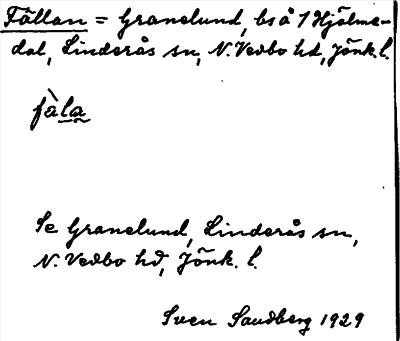 Fållan = Granelund, bs å 1 Hjälme-
dal, Linderås sn, N. Vedbo hd, Jönk. l.
fàla
Se Granelund, Linderås sn,
N. Vedbo hd, Jönk. l.
Sven Sandberg 1929